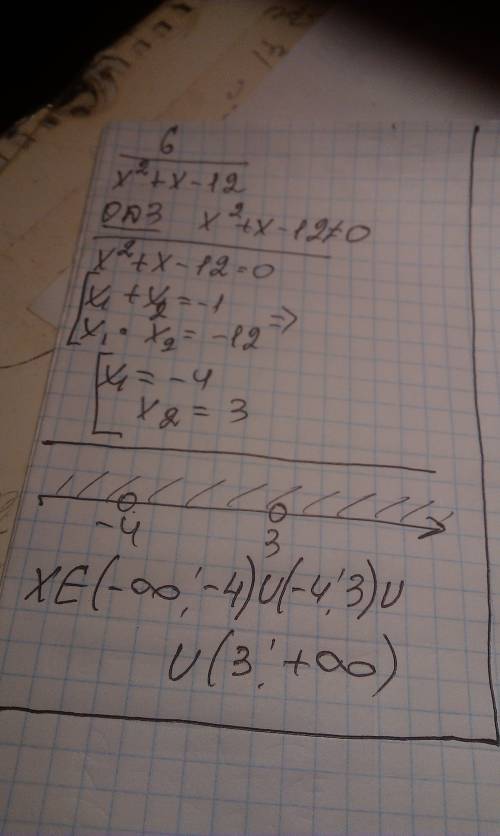 6
x²+x-12
ОДЗ x²+x-12≠0
x²+x-12=0
x₁+x₂=-1
x₁·x₂=-12 ⇒
x₁=-4
x₂=3
-4 3
XЄ(-∞;-4)U(-4;3)U
U(3;+∞)